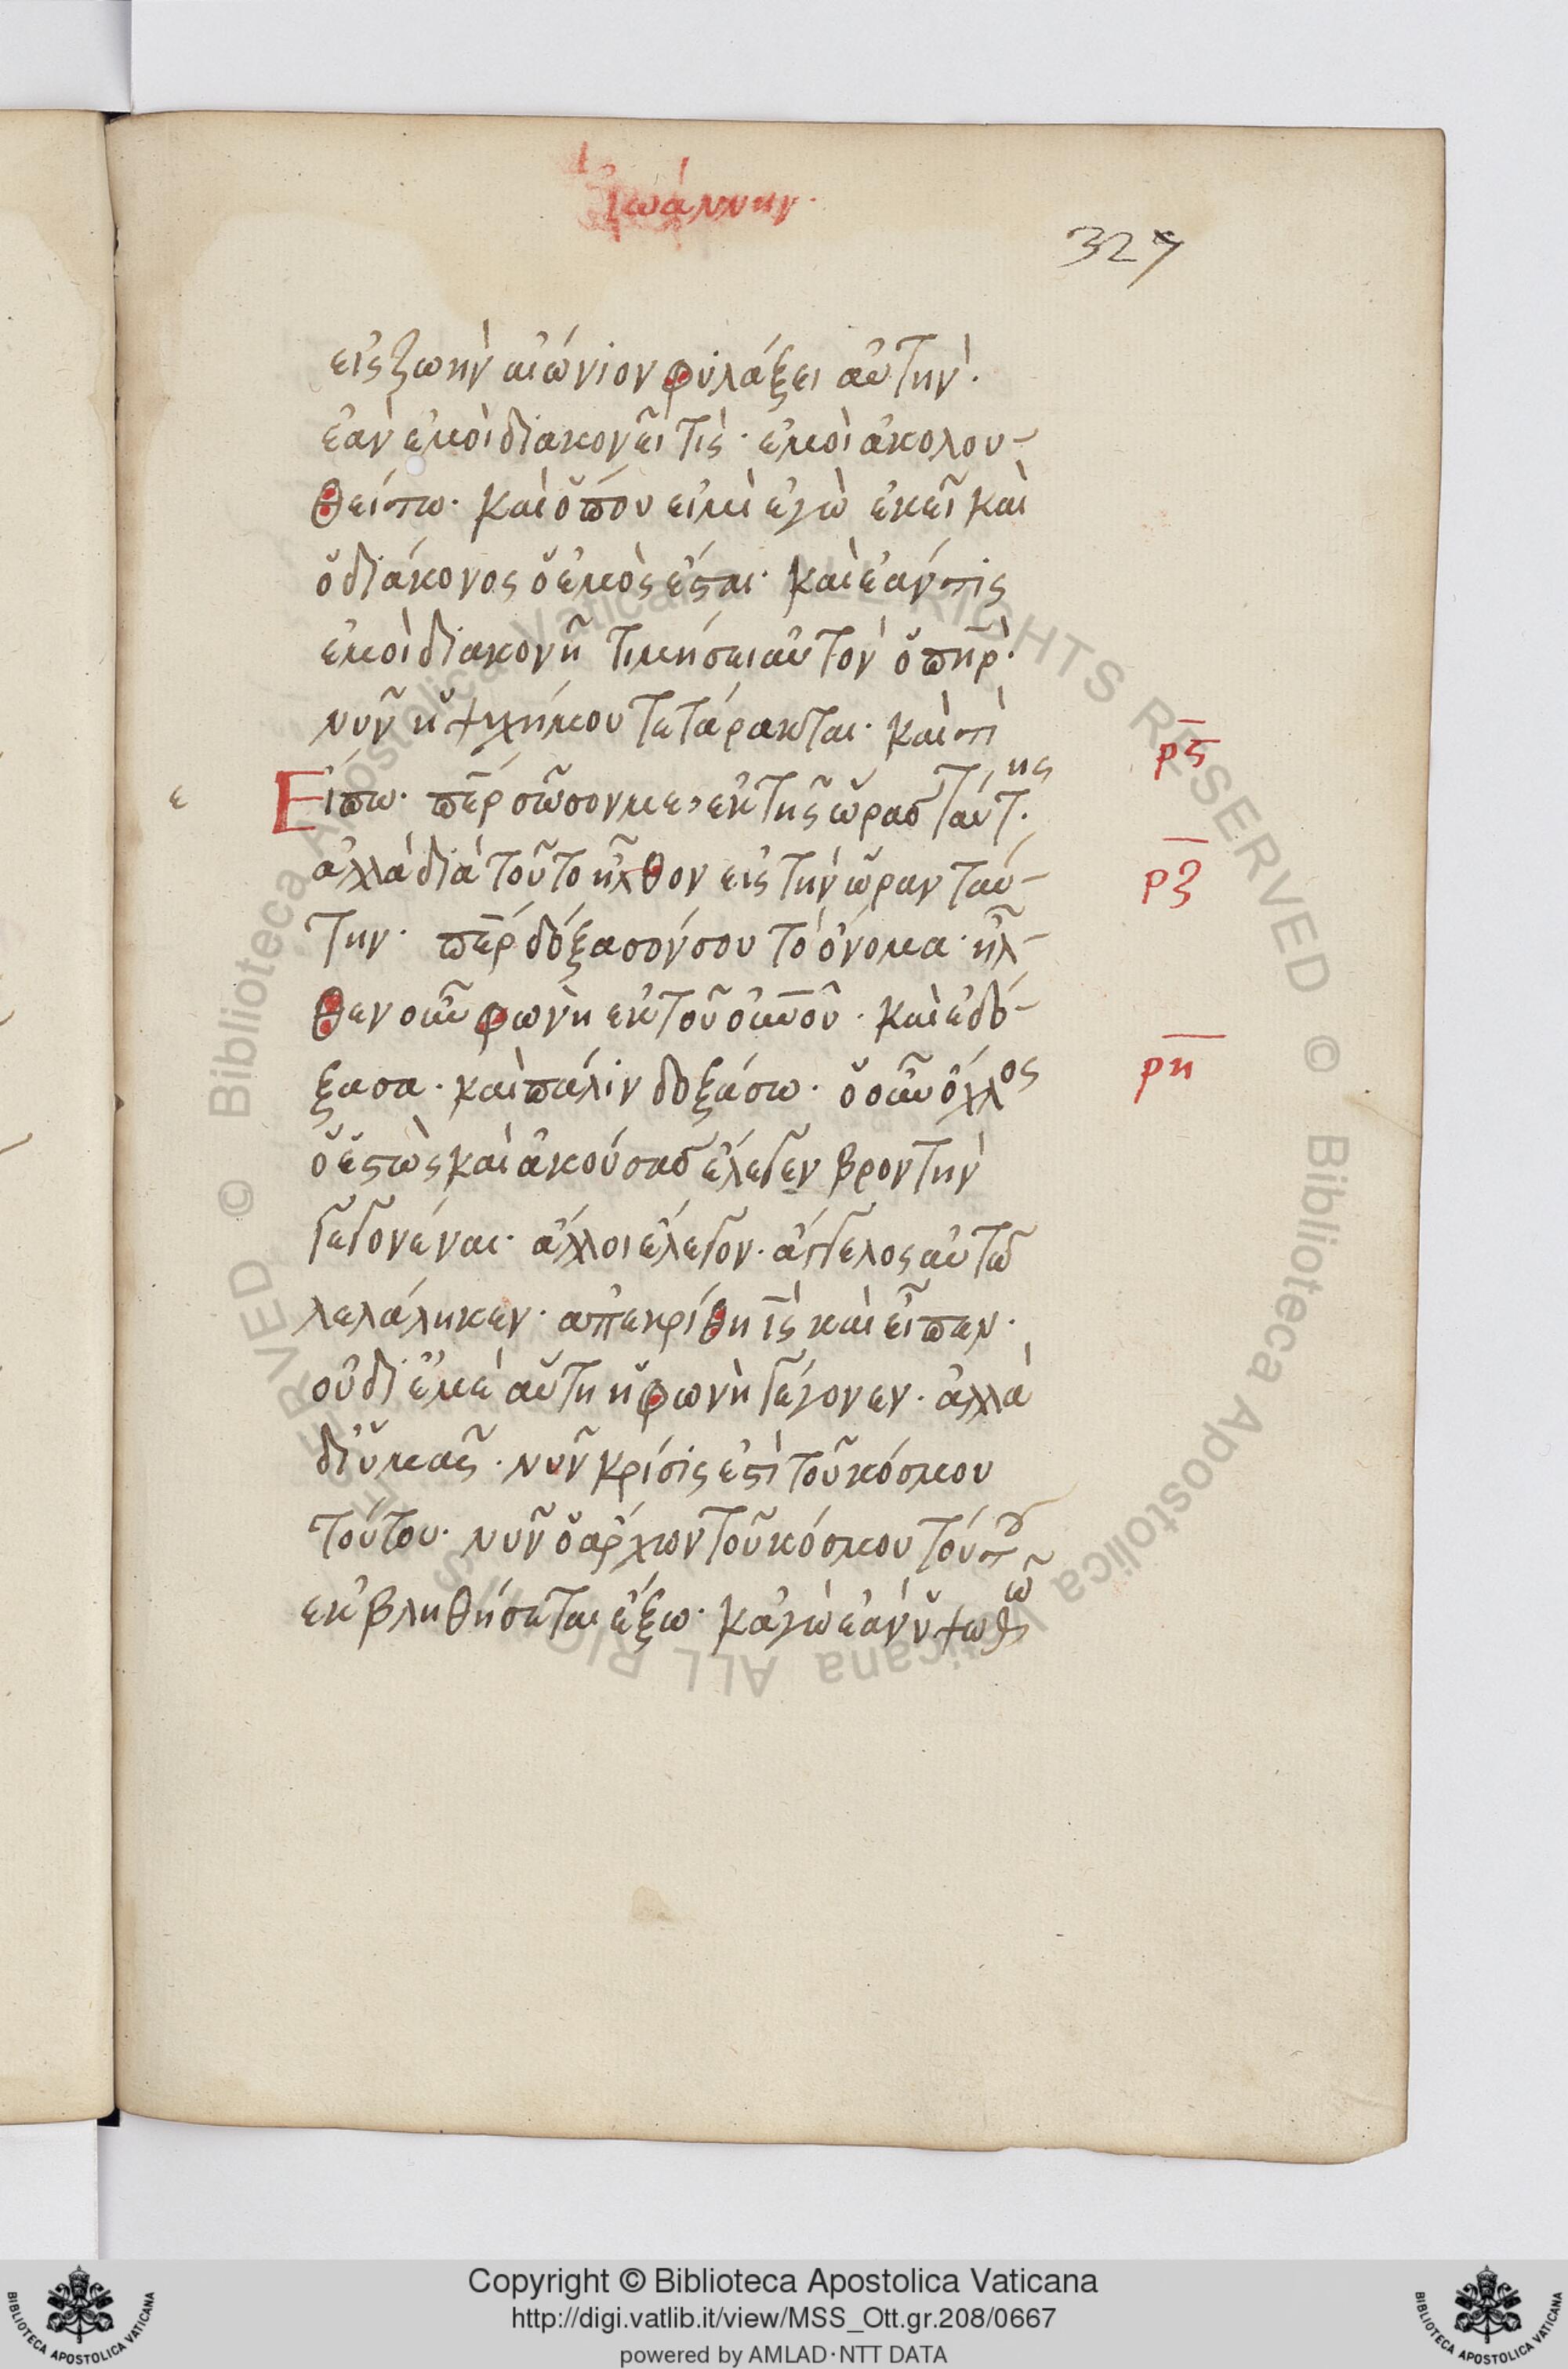 Ἰωάννην·
327
εἰς ζωὴν αἰώνιον φυλάξει αὐτήν·
ἐὰν ἐμοὶ διακονεῖ τίς· ἐμοὶ ἀκολου-
θείτω· καὶ ὅπου εἰμὶ ἐγὼ ἐκεῖ καὶ
ὁ διάκονος ὁ ἐμὸς ἔσται· καὶ ἐάν τις
ἐμοὶ διακονῆ τιμήσει αὐτὸν ὁ πηρ·
νῦν ἡ ψυχή μου τετάρακται· καὶ τί
ρς
ε
Εἴπω· περ σῶσον με, ἐκ τῆς ὥρας ταύτης·
ἀλλὰ διὰ τοῦτο ἦλθον εἰς τὴν ὥραν ταύ-
ρζ
την· περ δόξασόν σου τὸ ὄνομα· ἦλ-
θεν οὖν φωνὴ ἐκ τοῦ οὐνου· καὶ ἐδό-
ξασα· καὶ πάλιν δοξάσω· ὁ οὖν ὄχλος
ρη
ὁ ἑστὼς καὶ ἀκούσας ἔλεγεν βροντὴν
γεγονέναι· ἄλλοι ἔλεγον· ἄγγελος αὐτῶ
λελάληκεν· ἀπεκρίθη ις καὶ εἶπεν·
οὐ δι ἐμὲ αὕτη ἡ φωνὴ γέγονεν· ἀλλὰ
δι ὑμᾶς· νῦν κρίσις ἐστὶ τοῦ κόσμου
τούτου· νῦν ὁ ἄρχων τοῦ κόσμου τούτου
ἐκβληθήσεται ἔξω· κἀγὼ ἐὰν ὑψωθῶ
© Biblioteca Apostolica Vaticana ALL RIGHTS RESERVED © Biblioteca Apostolica Vaticana ALL RIGHTS RESERVED
Copyright © Biblioteca Apostolica Vaticana
http://digi.vatlib.it/view/MSS_Ott.gr.208/0667
powered by AMLAD·NTT DATA
BIBLIOTECA APOSTOLICA VATICANA
BIBLIOTECA APOSTOLICA VATICANA